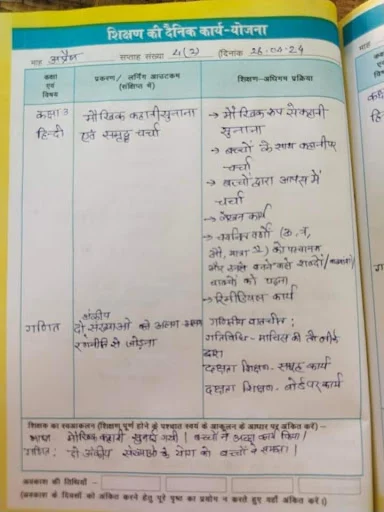 शिक्षण की दैनिक कार्य-योजना
माह अप्रैल सप्ताह संख्या 4(2) (दिनांक 26-04-24
कक्षा एवं विषय
प्रकरण / लर्निंग आउटकम (संक्षिप्त में)
शिक्षण-अधिगम प्रक्रिया
कक्षा 3
हिन्दी
मौखिक कहानी सुनाना
एवं समूह चर्चा
→ मौखिक रूप से कहानी
सुनाना
→ बच्चों के साथ कहानी पर
चर्चा
→ बच्चों द्वारा आपस में
चर्चा
→ लेखन कार्य
→ वर्णों
को पहचानना
और उनसे बनने वाले शब्दों/
वाक्यों को पढ़ना
→ रिमीडियल कार्य
गणित
अंकीय
दो संख्याओं को अलग-अलग
रणनीति से जोड़ना
गणितीय बातचीत:
गतिविधि- माचिस की तीलीके
द्वारा
दक्षता शिक्षण- समूह कार्य
दक्षता शिक्षण- बोर्ड पर कार्य
शिक्षक का स्वआकलन (शिक्षण पूर्ण होने के पश्चात स्वयं के आकलन के आधार पर अंकित करें) –
भाषा मौखिक कहानी सुनाई गयी। बच्चों ने अच्छा कार्य किया।
गणित: दो अंकीय संख्याओं के योग को बच्चों ने समझा।
अवकाश की तिथियाँ –
(अवकाश के दिवसों को अंकित करने हेतु पूरे पृष्ठ का प्रयोग न करते हुए यहाँ अंकित करें।)
माह